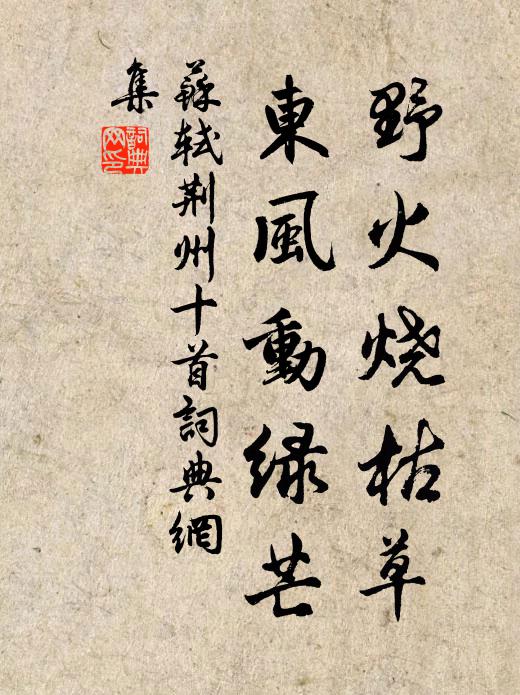 野火烧枯草
東風動绿芒
蘇軾荆州十首詞典網
集
詞典網印